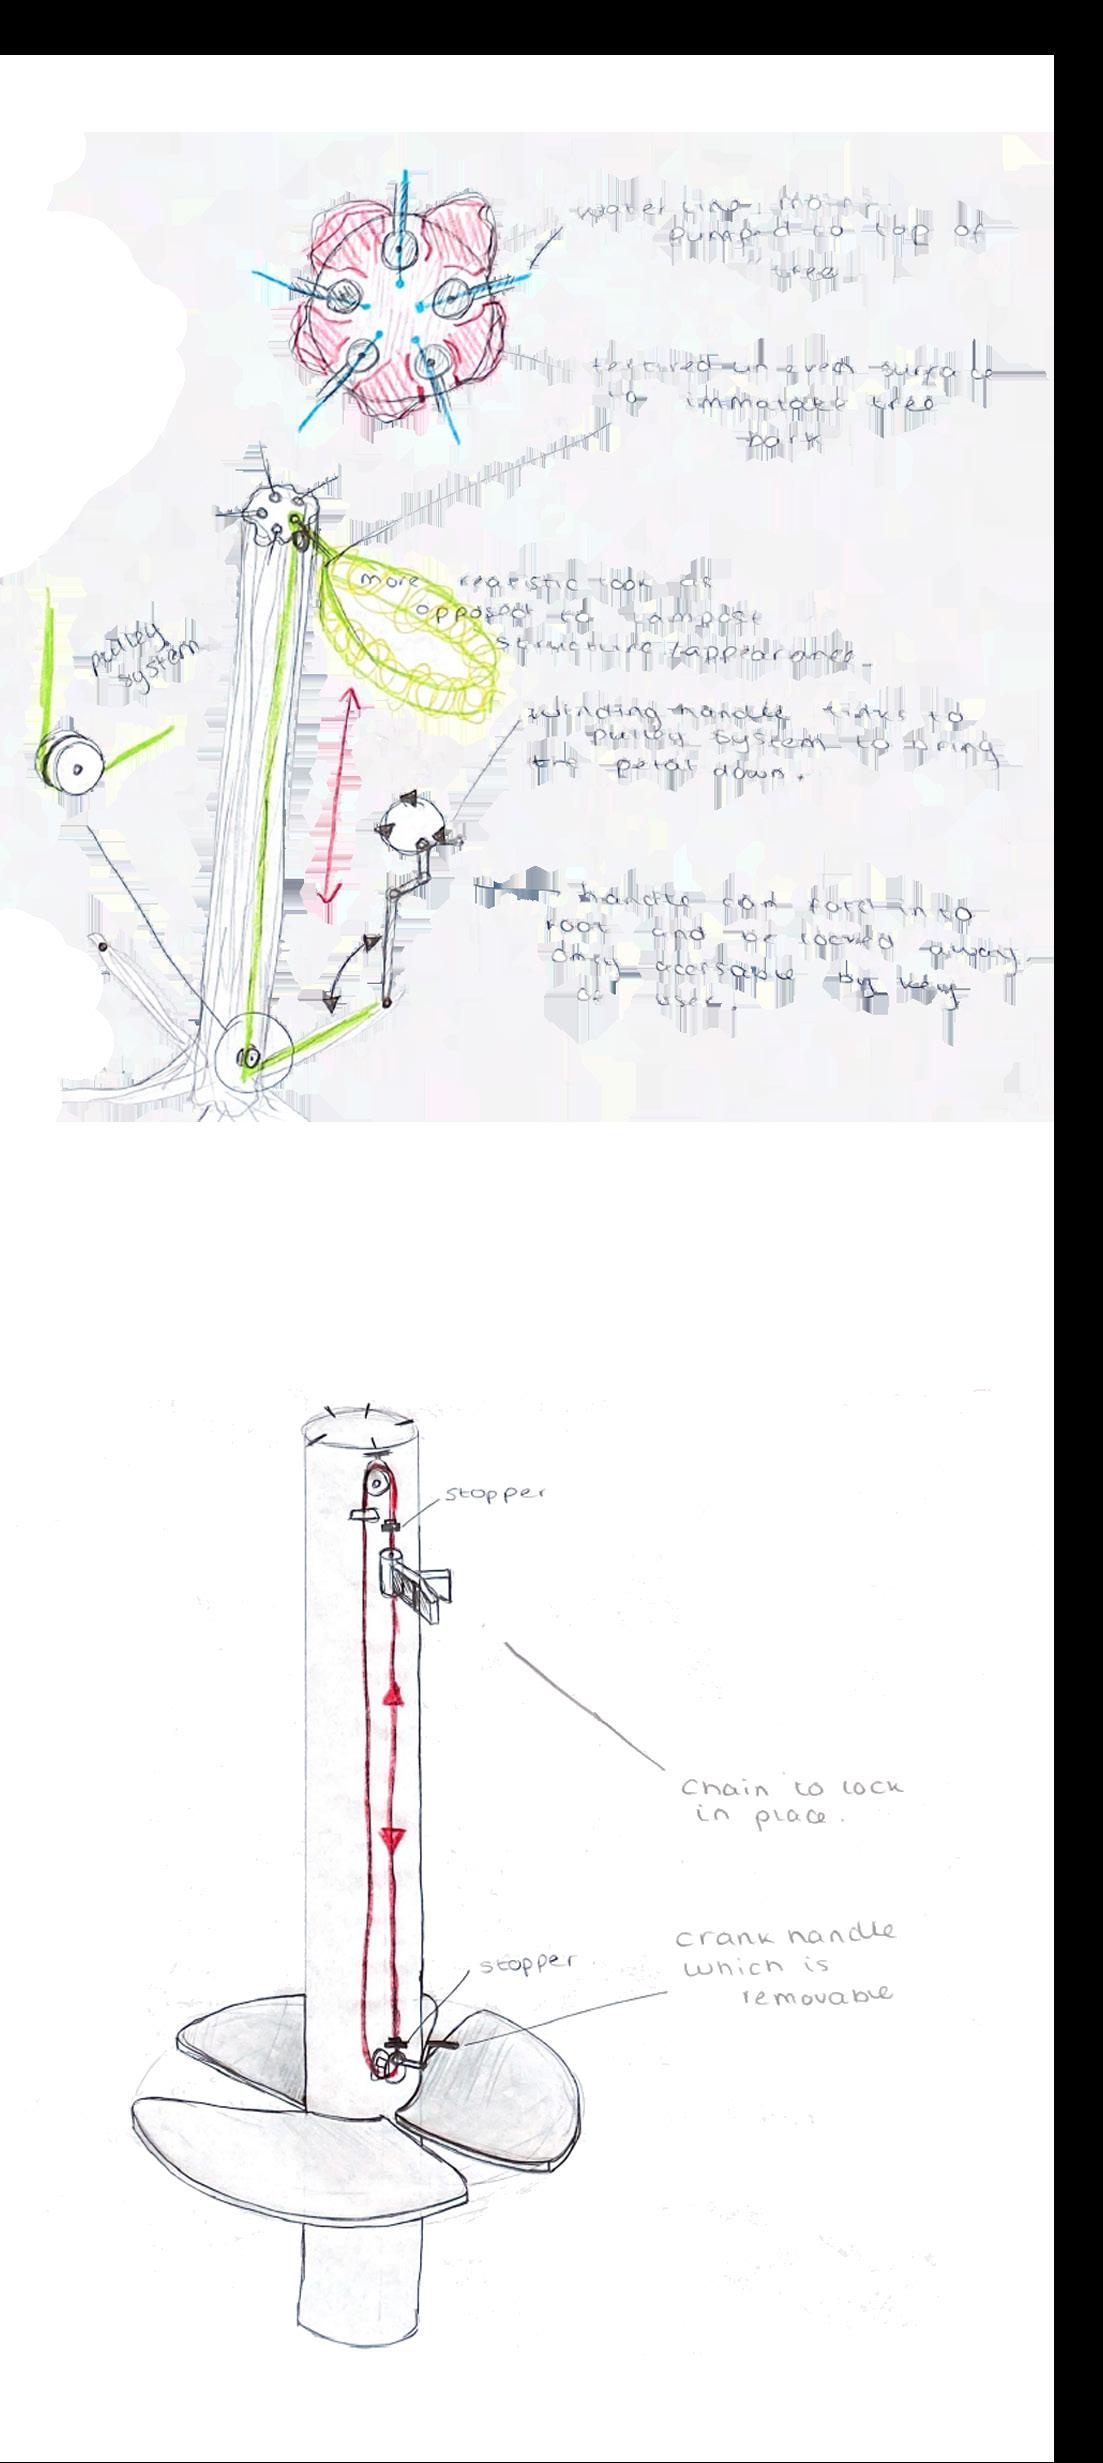 water
pumped to top of
tree
textured uneven
to immatate tree
bark
more realistic look as
opposed to lampost
structure/appearance.
pulley
system
winding handle links to
pulley system to bring
the petal down.
handle can fold into
root and be locked away.
only accessable by key
or user.
stopper
chain to lock
in place.
crank handle
which is
removable
stopper